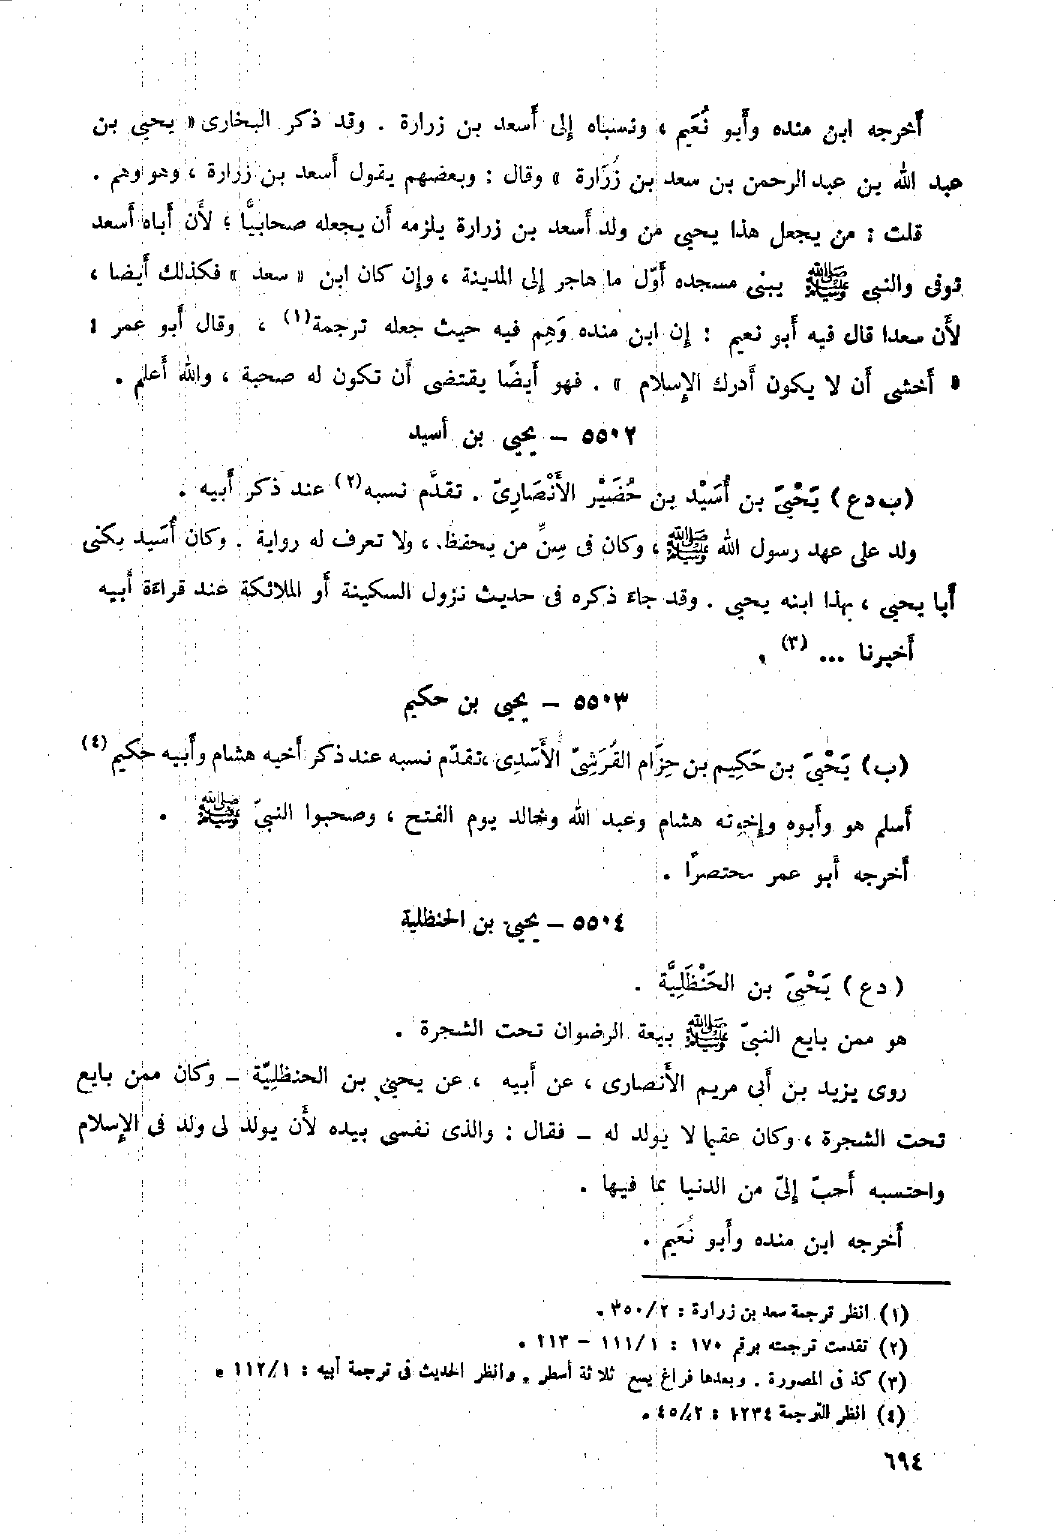 أخرجه ابن منده وأبو نُعَيم ، ونسباه إلى أسعد بن زرارة . وقد ذكر البخارى « يحيى بن
عبد الله بن عبد الرحمن بن سعد بن زُرَارة » وقال : وبعضهم يقول أسعد بن زرارة ، وهو وهم .
قلت : من يجعل هذا يحيى من ولد أسعد بن زرارة يلزمه أن يجعله صحابيًّا ؛ لأن أباه أسعد
توفى والنبى ﷺ يبنى مسجده أوّل ما هاجر إلى المدينة ، وإن كان ابن « سعد » فكذلك أيضا ،
لأن سعدا قال فيه أبو نعيم : إن ابن منده وَهِم فيه حيث جعله ترجمة(١) ، وقال أبو عمر :
« أخشى أن لا يكون أدرك الإسلام » . فهو أيضًا يقتضى أن تكون له صحبة ، والله أعلم .
٥٥٠٢ – يحيى بن أسيد
(ب د ع) يَحْيىَ بن أُسَيْد بن حُضَيْر الأَنْصَارِىّ . تقدَّم نسبه(٢) عند ذكر أبيه .
ولد على عهد رسول الله ﷺ ، وكان فى سِنِّ من يحفظ ، ولا تعرف له رواية . وكان أُسَيد يكنى
أبا يحيى ، بهذا ابنه يحيى . وقد جاء ذكره فى حديث نزول السكينة أو الملائكة عند قراءة أبيه
أخبرنا ... (٣) .
٥٥٠٣ – يحيى بن حكيم
(ب) يَحْيىَ بن حَكِيم بن حِزَام القُرَشِىّ الأَسَدِى ،تقدّم نسبه عند ذكر أخيه هشام وأبيه حكيم(٤)
أسلم هو وأبوه وإخوته هشام وعبد الله وخالد يوم الفتح ، وصحبوا النبىّ ﷺ .
أخرجه أبو عمر مختصرًا .
٥٥٠٤ – يحيى بن الحنظلية
(د ع) يَحْيىَ بن الحَنْظَلِيَّة .
هو ممن بايع النبىّ ﷺ بيعة الرضوان تحت الشجرة .
روى يزيد بن أبى مريم الأنصارى ، عن أبيه ، عن يحيى بن الحنظلِيّة – وكان ممن بايع
تحت الشجرة ، وكان عقيما لا يولد له – فقال : والذى نفسى بيده لأن يولد لى ولد فى الإسلام
واحتسبه أحبّ إلىّ من الدنيا بما فيها .
أخرجه ابن منده وأبو نُعَيم .
(١) انظر ترجمة سعد بن زرارة : ٣٥٠/٢ .
(٢) تقدمت ترجمته برقم ١٧٠ : ١١١/١ – ١١٣ .
(٣) كذ فى المصورة . وبعدها فراغ يسع ثلاثة أسطر . وانظر الحديث فى ترجمة أبيه : ١١٢/١ .
(٤) انظر الترجمة ١٢٣٤ : ٤٥/٢ .
٦٩٤